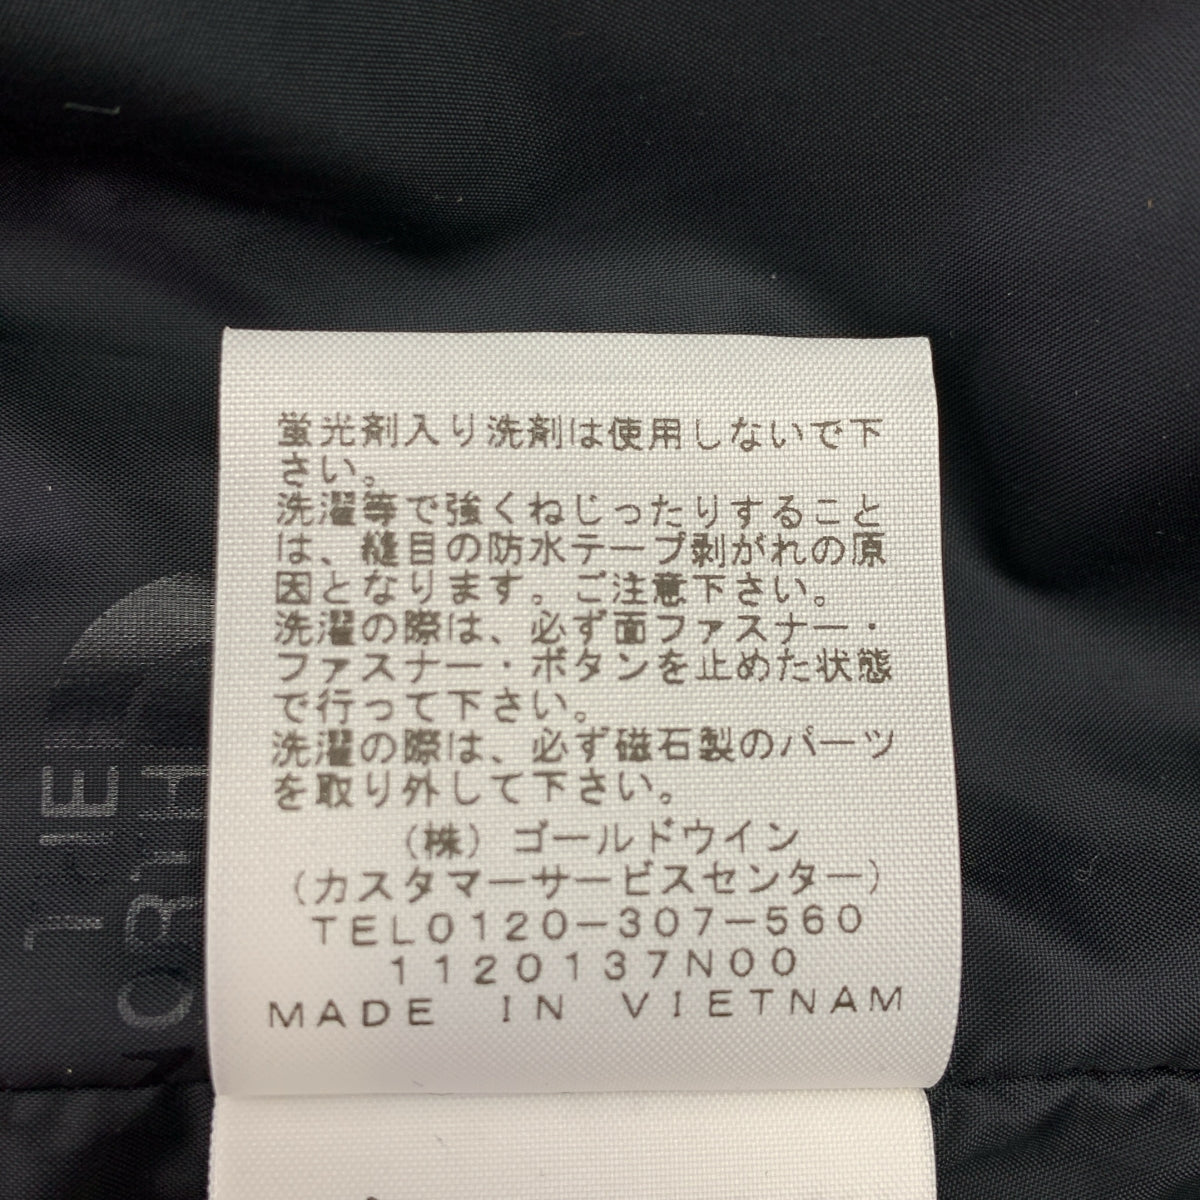 蛍光剤入り洗剤は使用しないで下
さい。
洗濯等で強くねじったりすること
は、縫目の防水テープ剥がれの原
因となります。ご注意下さい。
洗濯の際は、必ず面ファスナー・
ファスナー・ボタンを止めた状態
で行って下さい。
洗濯の際は、必ず磁石製のパーツ
を取り外して下さい。
(株)ゴールドウイン
(カスタマーサービスセンター)
TEL0120-307-560
1120137N00
MADE IN VIETNAM
THE